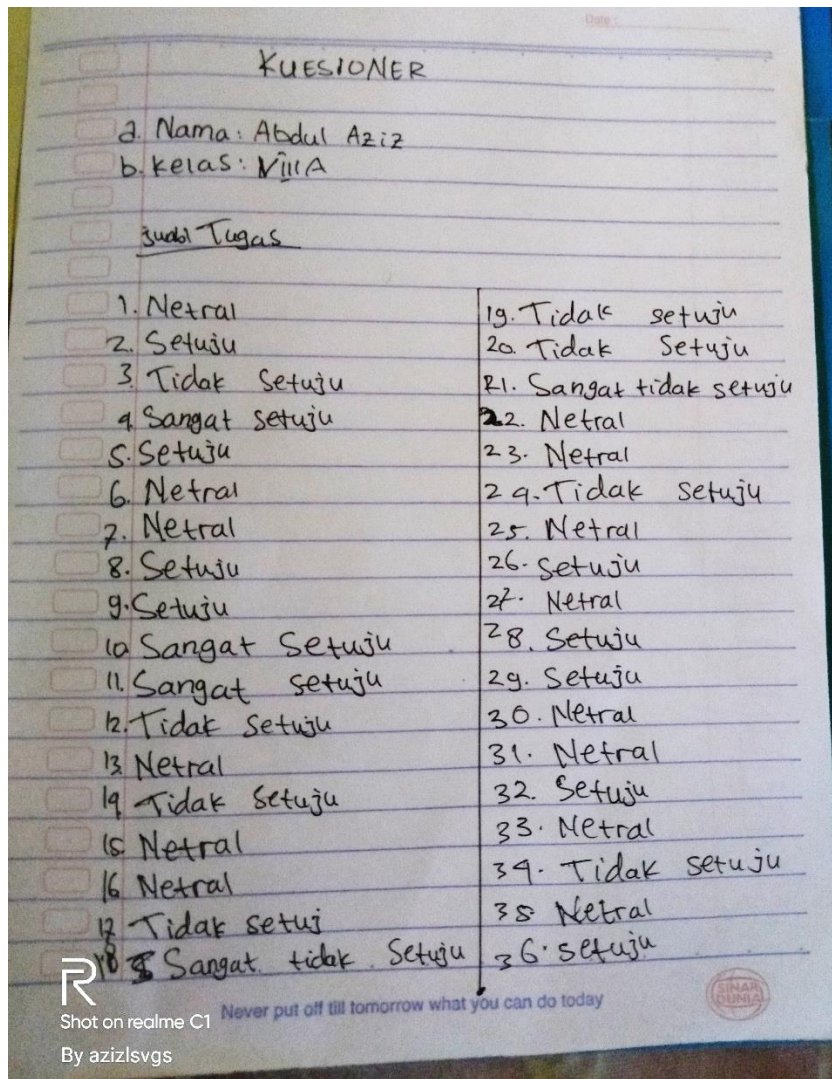 Date :
KUESIONER
a. Nama: Abdul Aziz
b. Kelas: VIIIA
Tugas
1. Netral
2. Setuju
3. Tidak Setuju
4 Sangat setuju
5. Setuju
6. Netral
7. Netral
8. Setuju
9. Setuju
10 Sangat Setuju
11. Sangat setuju
12. Tidak Setuju
13 Netral
14 Tidak Setuju
15 Netral
16 Netral
17 Tidak setuj
18 Sangat tidak Setuju
19. Tidak setuju
20. Tidak Setuju
21. Sangat tidak setuju
22. Netral
23. Netral
24. Tidak setuju
25. Netral
26. Setuju
27. Netral
28. Setuju
29. Setuju
30. Netral
31. Netral
32. Setuju
33. Netral
34. Tidak setuju
35 Netral
36. setuju
Never put off till tomorrow what you can do today
SINAR DUNIA
R
Shot on realme C1
By azizlsvgs